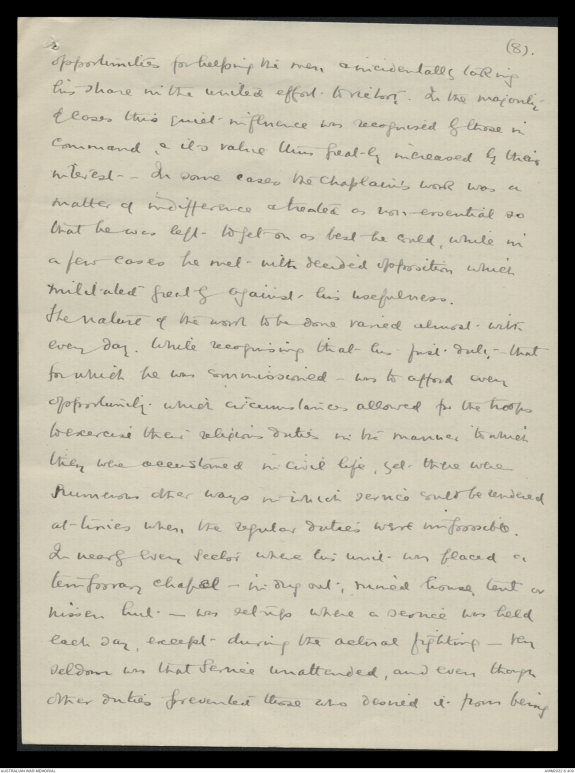 (8).
opportunities for helping the men & incidentally taking
his share in the united effort to victory. In the majority
of cases this quiet influence was recognised by those in
command, & it's value thus greatly increased by their
interest - In some cases the Chaplain's work was a
matter of indifference & treated as non-essential so
that he was left to get on as best he could, while in
a few cases he met with decided opposition which
militated greatly against his usefulness.
The nature of the work to be done varied almost with
every day. While recognising that his first duty - that
for which he was commissioned - was to afford every
opportunity which circumstances allowed for the troops
to exercise their religious duties in the manner to which
they were accustomed in civil life, yet there were
numerous other ways in which service could be rendered
at times when the regular duties were impossible.
In nearly every sector where his unit was placed a
temporary chapel - in dug out, ruined house, tent or
nissen hut - was set up where a service was held
each day, except during the actual fighting - very
seldom was that Service unattended, and even though
other duties prevented those who desired it from being
AUSTRALIAN WAR MEMORIAL